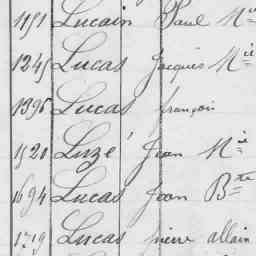 1151 Lucain Paul Mie
1245 Lucas Jacques Mie
1395 Lucas françois
1521 Luzé Jean Mie
1694 Lucas Jean Bte
1719 Lucas pierre allain